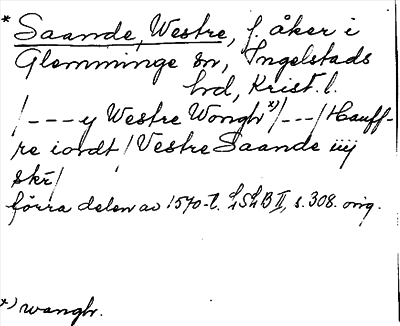 * Saande, Westre, f. åker i
Glemminge sn, Ingelstads
hd, Krist. l.
/ - - - y Westre Wongh *) / - - - / Hauff-
re iordt / Vestre Saande iiij
skr /
förra delen av 1570-t. LSLB II, s. 308. orig.
*) wangh.